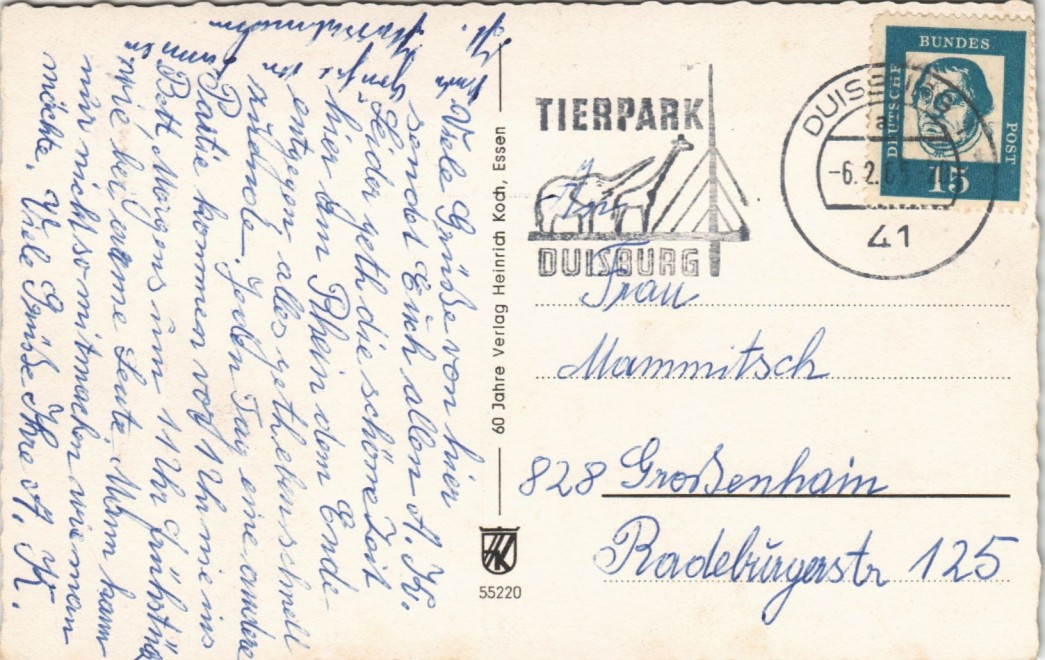 Viele Grüße von hier
sendet Euch allen A. K.
Leider geth die schöne Zeit
hier am Rhein dem Ende
entgegen alles geth eben schnell
zu Ende. Jeden Tag eine andere
Partie kommen vor 1 Uhr nie ins
Bett, Morgens um 11 Uhr frühstück
wie bei arme Leute. Mann kann
nur nicht so mitmachen wie man
möchte. Viele Grüße Ihre A. K.
60 Jahre Verlag Heinrich Koch, Essen
HK
55220
TIERPARK
DUISBURG
DUISBURG
-6.2.6
41
DEUTSCHE
BUNDES
POST
15
Frau
Mammitsch
828 Großenhain
Radeburgerstr 125